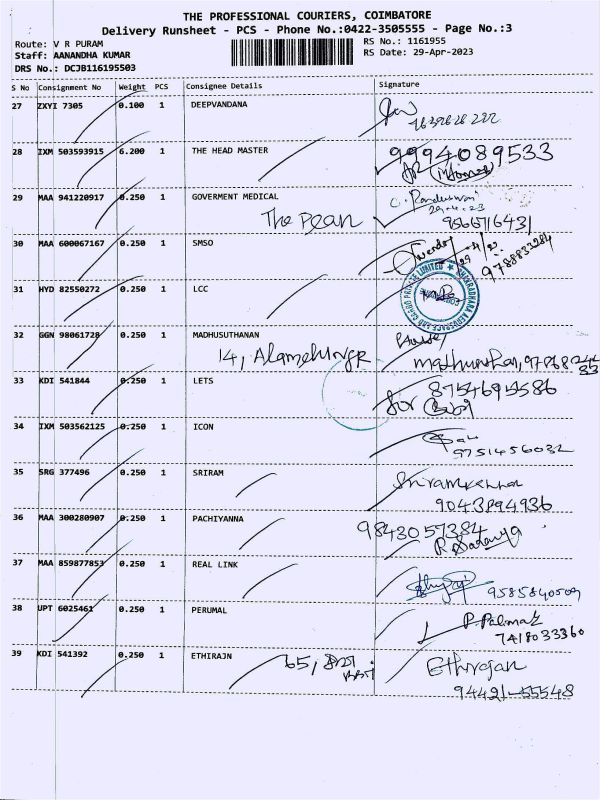 THE PROFESSIONAL COURIERS, COIMBATORE
Delivery Runsheet - PCS - Phone No.:0422-3505555 - Page No.:3
Route: V R PURAM
RS No.: 1161955
Staff: AANANDHA KUMAR
RS Date: 29-Apr-2023
DRS No.: DCJB116195503
S No Consignment No Weight PCS Consignee Details Signature
27 ZXYI 7305 0.100 1 DEEPVANDANA
28 IXM 503593915 6.200 1 THE HEAD MASTER 9994089533
29 MAA 941220917 0.250 1 GOVERMENT MEDICAL
29-4-23
The Dean 9566716431
30 MAA 600067167 0.250 1 SMSO
9788833284
31 HYD 82550272 0.250 1 LCC
32 GGN 98061728 0.250 1 MADHUSUTHANAN
14, Alamelu
33 KDI 541844 0.250 1 LETS 8754695586
for
34 IXM 503562125 0.250 1 ICON
9751456032
35 SRG 377496 0.250 1 SRIRAM
9043894936
36 MAA 300280907 0.250 1 PACHIYANNA 9843057384
37 MAA 859877853 0.250 1 REAL LINK
9585840509
38 UPT 6025461 0.250 1 PERUMAL
7418033360
39 KDI 541392 0.250 1 ETHIRAJN 65, Ethirajan
94421-55548